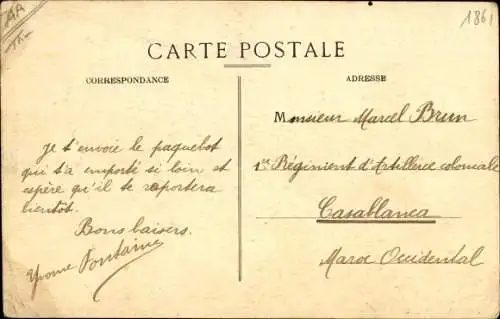 AA
1861
CARTE POSTALE
CORRESPONDANCE
ADRESSE
Je t'envoie le paquebot
qui t'a emporté si loin et
espère qu'il te reportera
bientôt.
Bons baisers.
Yvonne Fontaine
Monsieur Marcel Brun
1er Régiment d'Artillerie coloniale
Casablanca
Maroc Occidental